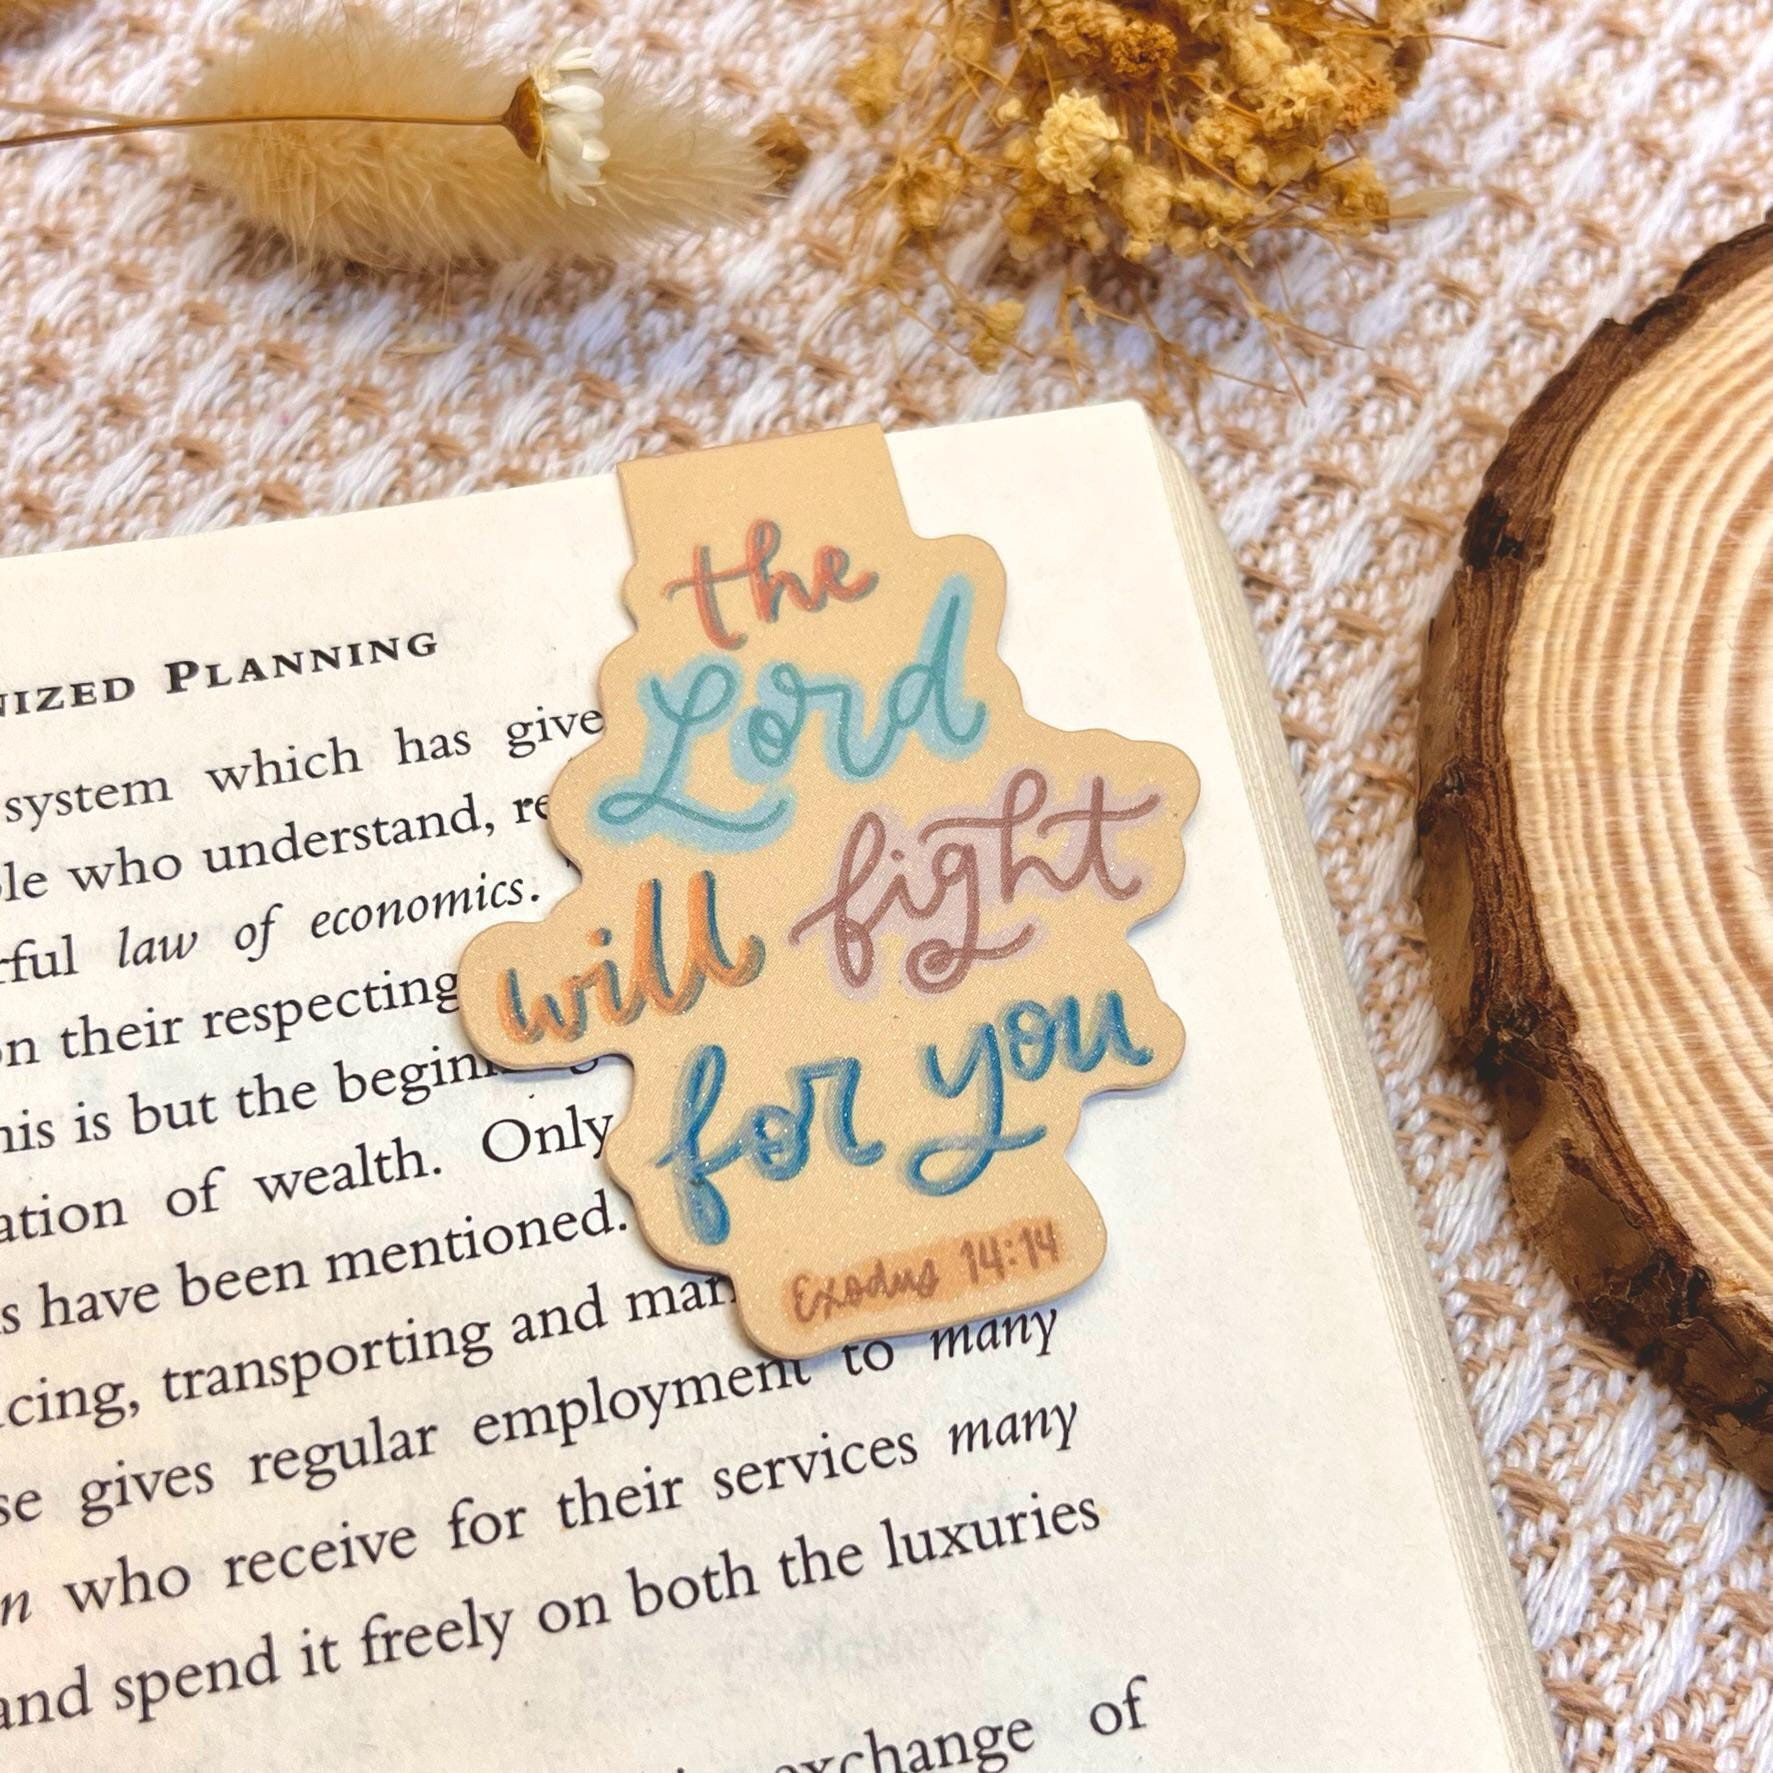 PLANNING
system which has give
who understand,
law of economics.
their respecting
is but the
of wealth. Only
have been mentioned.
transporting and
gives regular employment to many
who receive for their services many
and spend it freely on both the luxuries
exchange of
the
Lord
will fight
for you
Exodus 14:14